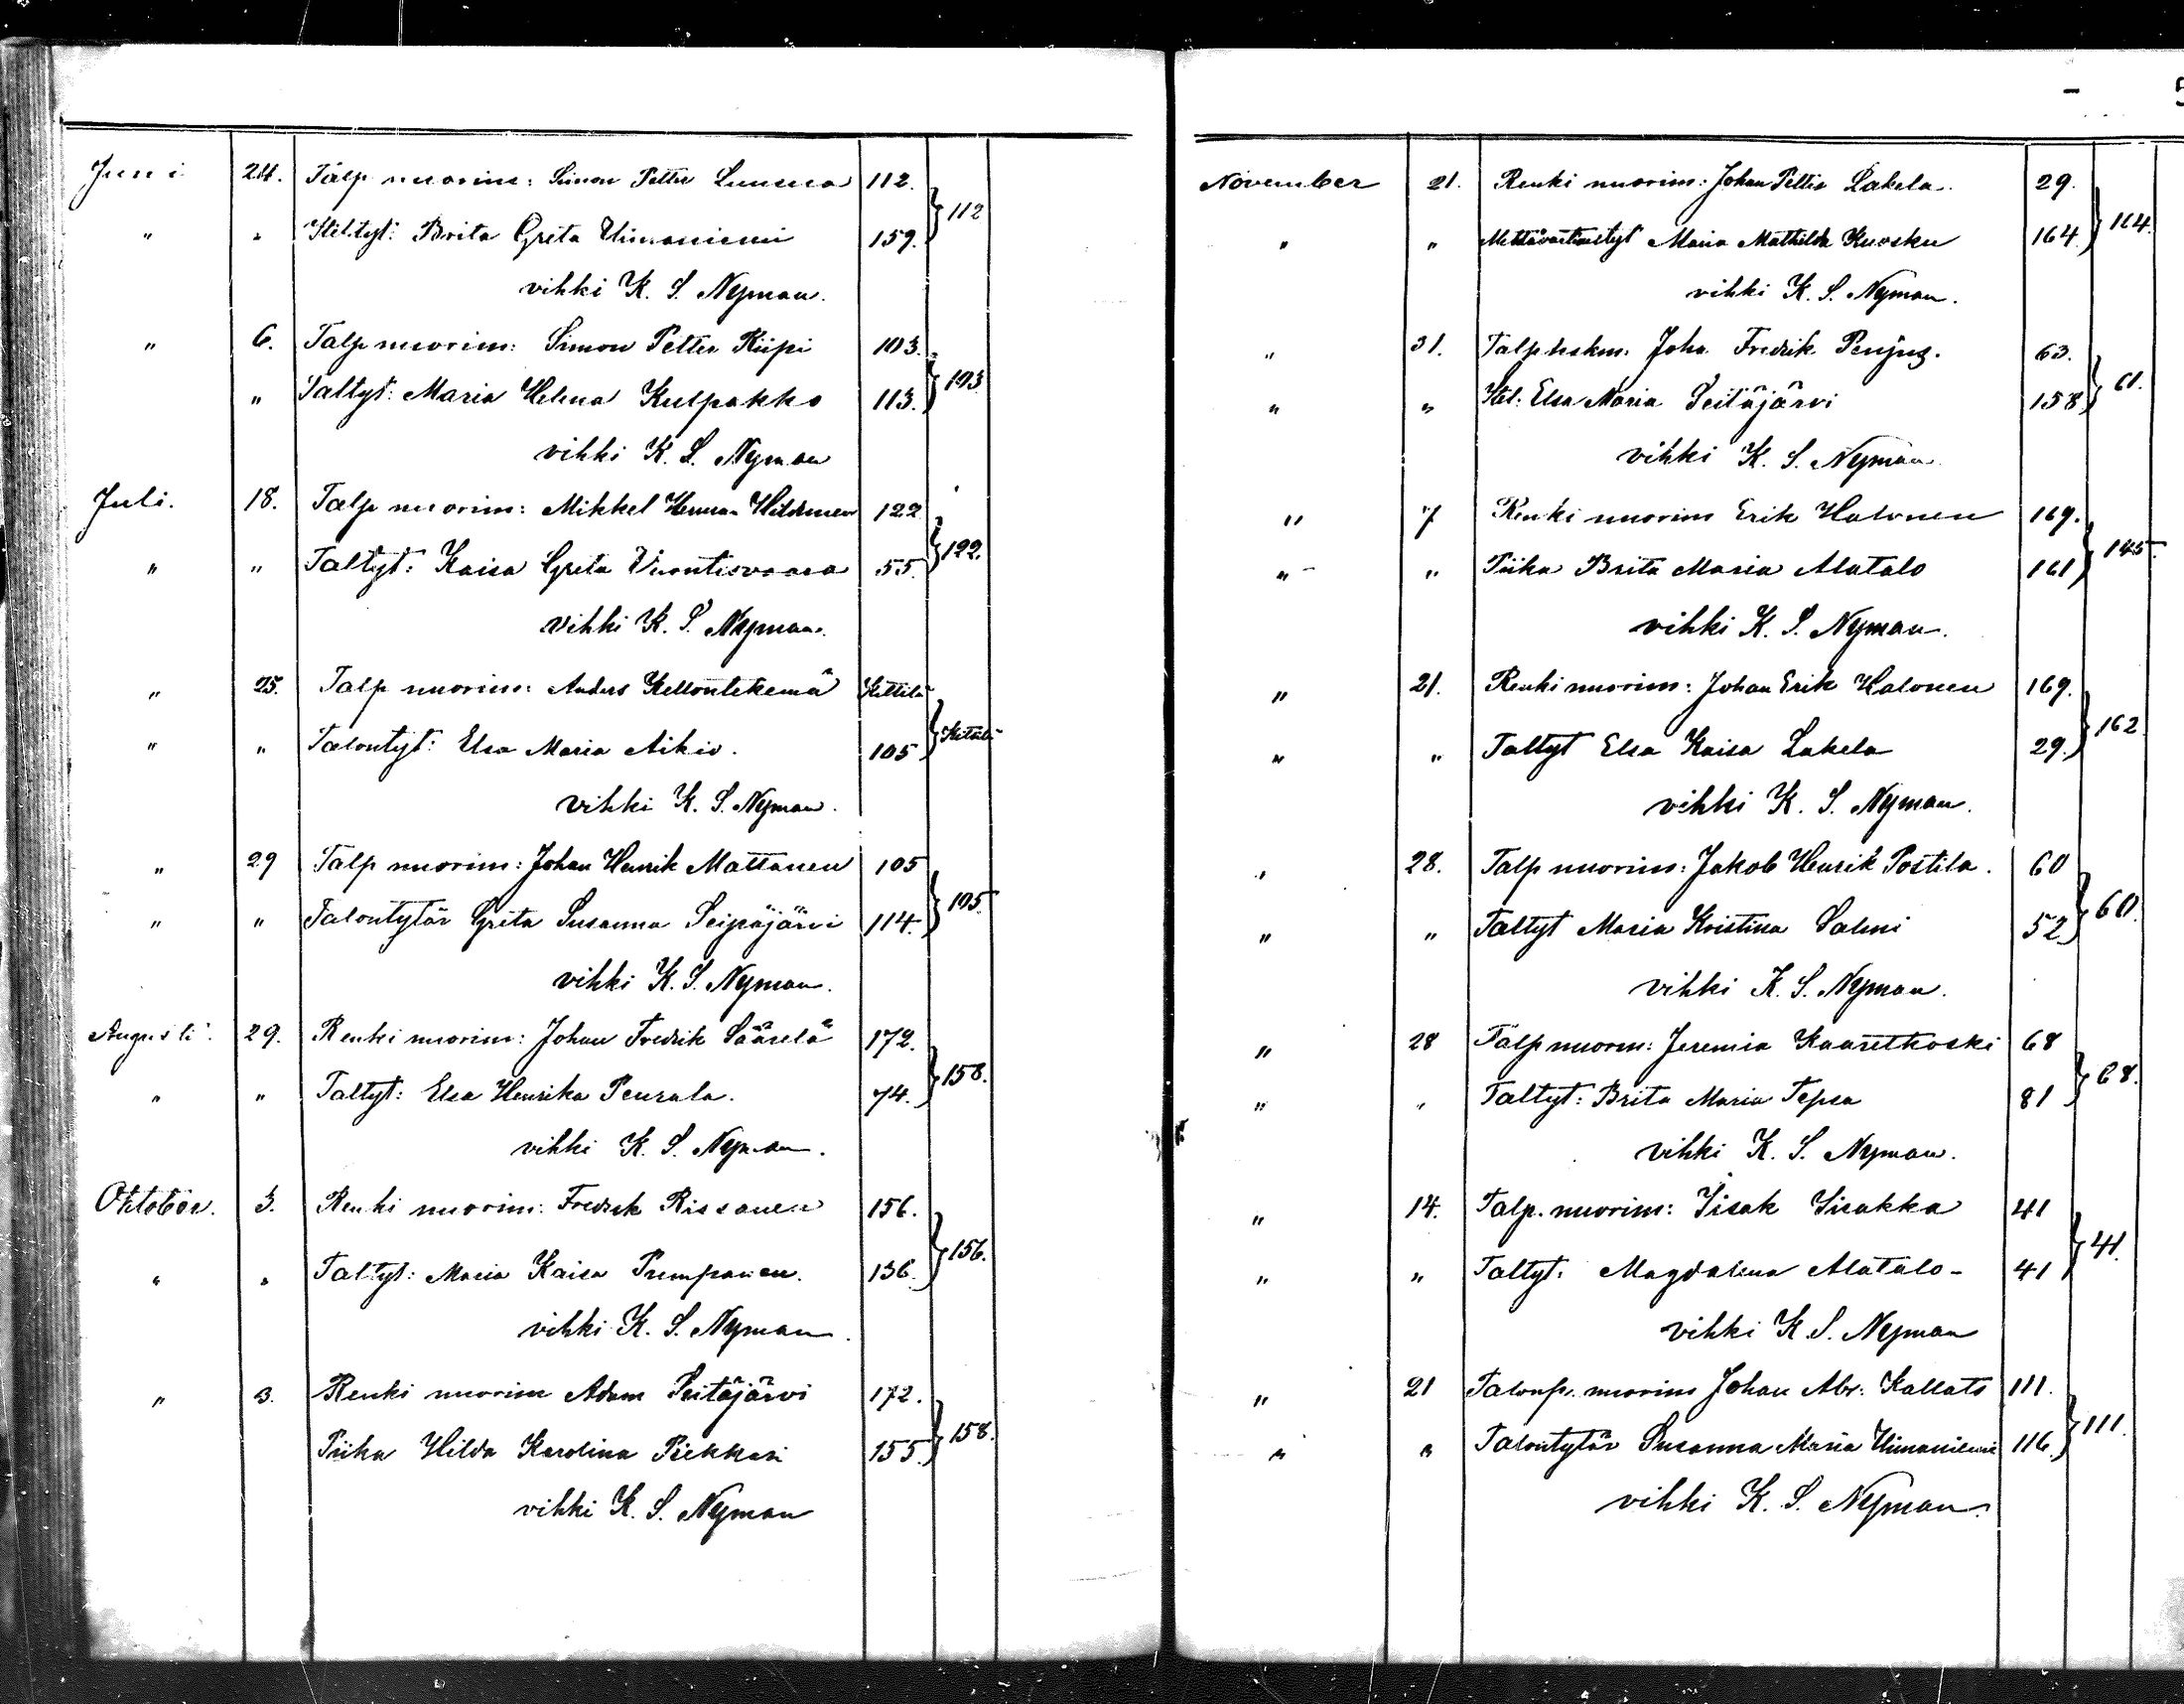 Juni 24. Talp nuorim: Simon Petter Luusua 112.
" " Itel.tyt: Brita Greta Uimaniemi 159. } 112
vihki K. S. Nyman.
" 6. Talp nuorim: Simon Petter Kiipi 103.
" Taltyt: Maria Helena Kulpakko 113. } 103
vihki K. S. Nyman
Juli. 18. Talp nuorim: Mikkel Herman 122
" " Taltyt: Kaisa Greta Vuontisvaara 55. } 122.
vihki K. S. Nyman.
" 25. Talp nuorim: Anders Kellontekemä Kittilä
" " Talontyt: Elsa Maria Aikio. 105 } Kittilä
vihki K. S. Nyman.
" 29 Talp nuorim: Johan Henrik Mattanen 105
" " Talontytär Greta Susanna Seipäjärvi 114. } 105.
vihki K. S. Nyman.
Augusti. 29. Renki nuorim: Johan Fredrik Säärelä 172.
" " Taltyt: Elsa Henrika Peurala. 74. } 158.
vihki K. S. Nyman.
Oktober. 3. Renki nuorim: Fredrik Rissanen 156.
" " Taltyt: Maria Kaisa Pumpanen. 136. } 156.
vihki K. S. Nyman.
" 3. Renki nuorim Adam Seitäjärvi 172.
Piika Hilda Karolina Piekkari 155. } 158.
vihki K. S. Nyman
- 5
November 21. Renki nuorim: Johan Petter Lakela. 29.
" " Mettävartiantyt Maria Mathilda Kuosku 164. } 164.
vihki K. S. Nyman.
" 31. Talp leskm. Joha Fredrik 63.
" " Itel. Elsa Maria Seitäjärvi 158 } 61.
vihki K. S. Nyman
" 7 Renki nuorim Erik Halonen 169.
" " Piika Brita Maria Alatalo 161 } 145.
vihki K. S. Nyman.
" 21. Renki nuorim: Johan Erik Halonen 169.
" " Taltyt Elsa Kaisa Lakela 29. } 162
vihki K. S. Nyman.
" 28. Talp nuorim: Jakob Henrik Postila. 60
" " Taltyt Maria Kristina Salmi 52 } 60.
vihki K. S. Nyman.
" 28 Talp nuorm: Jeremia Kaaretkoski 68
" " Taltyt: Brita Maria Tepsa 81 } 68.
vihki K. S. Nyman.
" 14. Talp. nuorim: Iisak Iisakka 41
" " Taltyt. Magdalena Alatalo- 41 } 41.
vihki K. S. Nyman
" 21 Talonp. nuorim Johan Abr: Kallats 111.
" " Talontytär Susanna Maria Uimaniemi 116. } 111.
vihki K. S. Nyman.